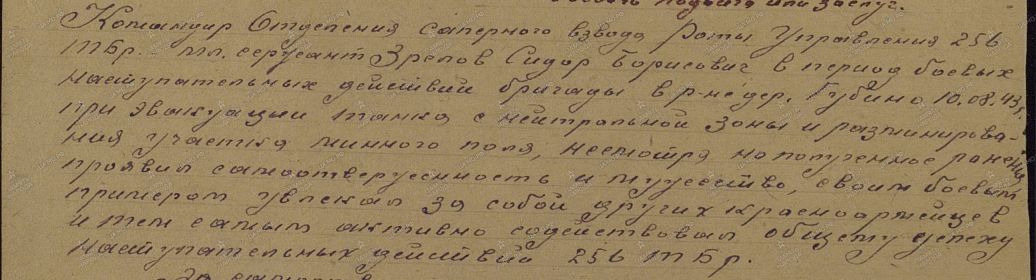 подвига или заслуг.
Командир Отделения саперного взвода Роты Управления 256
тбр. мл. сержант Зрелов Сидор Борисович в период боевых
наступательных действий бригады в р-не дер. Губино 10.08.43г.
при эвакуации танка с нейтральной зоны и разминирова-
ния участка минного поля, несмотря на полученное ранение,
проявил самоотверженность и мужество, своим боевым
примером увлекал за собой других красноармейцев
и тем самым активно содействовал общему успеху
наступательных действий 256 тбр.
За